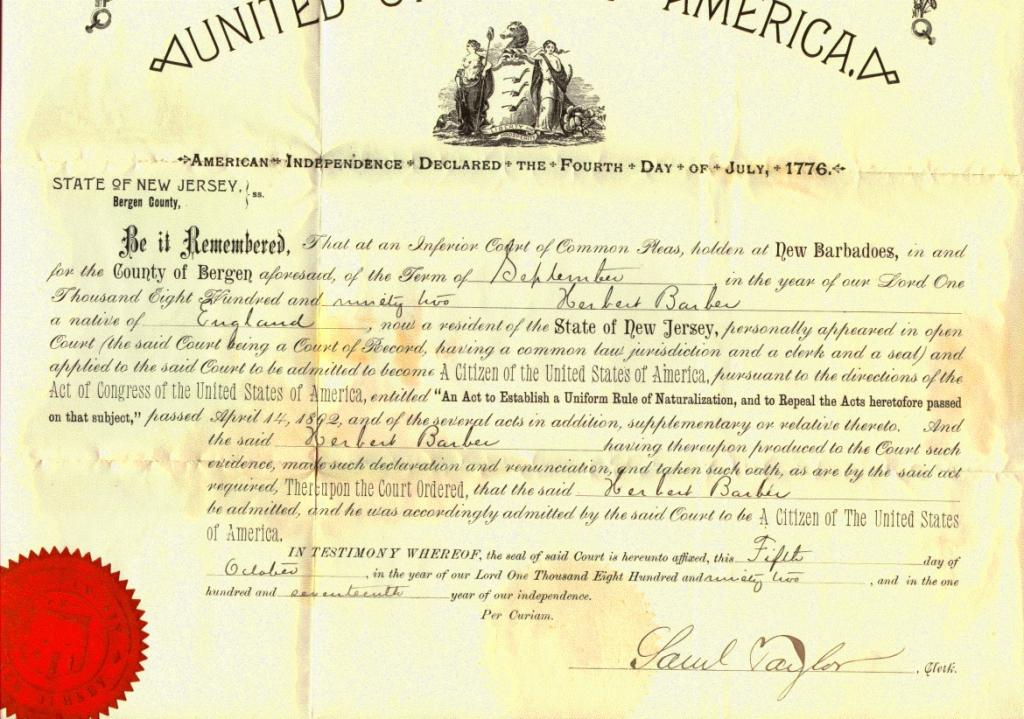 UNITED STATES OF AMERICA.
LIBERTY
AMERICAN INDEPENDENCE DECLARED THE FOURTH DAY OF JULY, 1776.
STATE OF NEW JERSEY, } ss.
Bergen County,
Be it Remembered, That at an Inferior Court of Common Pleas, holden at New Barbadoes, in and
for the County of Bergen aforesaid, of the Term of September in the year of our Lord One
Thousand Eight Hundred and ninety two Herbert Barber
a native of England, now a resident of the State of New Jersey, personally appeared in open
Court (the said Court being a Court of Record, having a common law jurisdiction and a clerk and a seal) and
applied to the said Court to be admitted to become A Citizen of the United States of America, pursuant to the directions of the
Act of Congress of the United States of America, entitled "An Act to Establish a Uniform Rule of Naturalization, and to Repeal the Acts heretofore passed
on that subject," passed April 14, 1892, and of the several acts in addition, supplementary or relative thereto. And
the said Herbert Barber having thereupon produced to the Court such
evidence, made such declaration and renunciation, and taken such oath, as are by the said act
required, Thereupon the Court Ordered, that the said Herbert Barber
be admitted, and he was accordingly admitted by the said Court to be A Citizen of The United States
of America.
IN TESTIMONY WHEREOF, the seal of said Court is hereunto affixed, this Fifth day of
October, in the year of our Lord One Thousand Eight Hundred and ninety two, and in the one
hundred and seventeenth year of our independence.
Per Curiam.
Saml Taylor, Clerk.
JERSEY